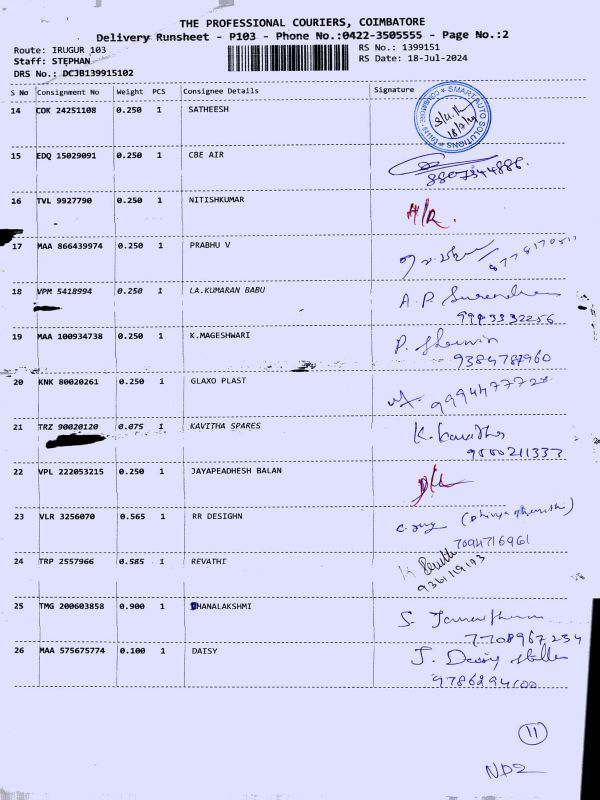 THE PROFESSIONAL COURIERS, COIMBATORE
Delivery Runsheet - P103 - Phone No.:0422-3505555 - Page No.:2
Route: IRUGUR 103
RS No.: 1399151
Staff: STEPHAN
RS Date: 18-Jul-2024
DRS No.: DCJB139915102
S No Consignment No Weight PCS Consignee Details Signature
14 COK 24251108 0.250 1 SATHEESH
SMART AUTO SOLUTIONS
15 EDQ 15029091 0.250 1 CBE AIR
8807344886.
16 TVL 9927790 0.250 1 NITISHKUMAR
17 MAA 866439974 0.250 1 PRABHU V
18 VPM 5418994 0.250 1 LA.KUMARAN BABU
A.P
19 MAA 100934738 0.250 1 K.MAGESHWARI
9384787960
20 KNK 80020261 0.250 1 GLAXO PLAST
21 TRZ 90020120 0.075 1 KAVITHA SPARES
K. Kavitha
22 VPL 222053215 0.250 1 JAYAPEADHESH BALAN
23 VLR 3256070 0.565 1 RR DESIGHN
7094716961
24 TRP 2557966 0.585 1 REVATHI
25 TMG 200603858 0.900 1 DHANALAKSHMI
7708967234
26 MAA 575675774 0.100 1 DAISY
J. Daisy
11